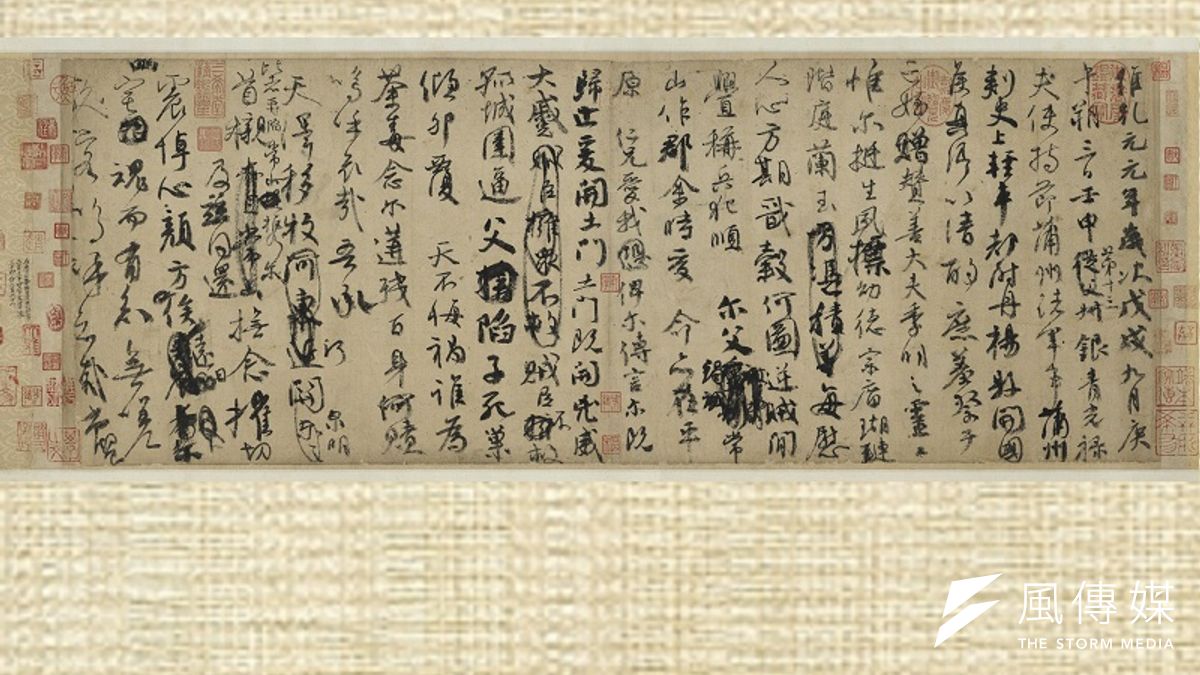 維乾元元年歲次戊戌九月庚
午朔三日壬申第十三叔銀青光祿
夫使持節蒲州諸軍事蒲州
刺史上輕車都尉丹楊縣開國
侯真卿以清酌庶羞祭于
亡姪贈贊善大夫季明之靈曰
惟尔挺生夙標幼德宗廟瑚璉
階庭蘭玉方憑積善每慰
人心方期戩穀何圖逆賊閒
釁稱兵犯順 尔父竭誠常
山作郡余時受 命亦在平
原 仁兄愛我恐俾尔傳言尔既
歸止爰開土門土門既開凶威
大蹙賊臣擁眾不救賊臣不擁救
孤城圍逼父擒陷子死巢
傾卵覆 天不悔禍誰為
荼毒念尔遘殘百身何贖
嗚乎哀哉吾承
天澤移牧河東近河關泉明
比者再陷常山攜尔
首櫬亦自常山及茲同還撫念摧切
震悼心顏方俟遠日
宅魂而有知無嗟
久客嗚呼哀哉尚饗
風傳媒
THE STORM MEDIA